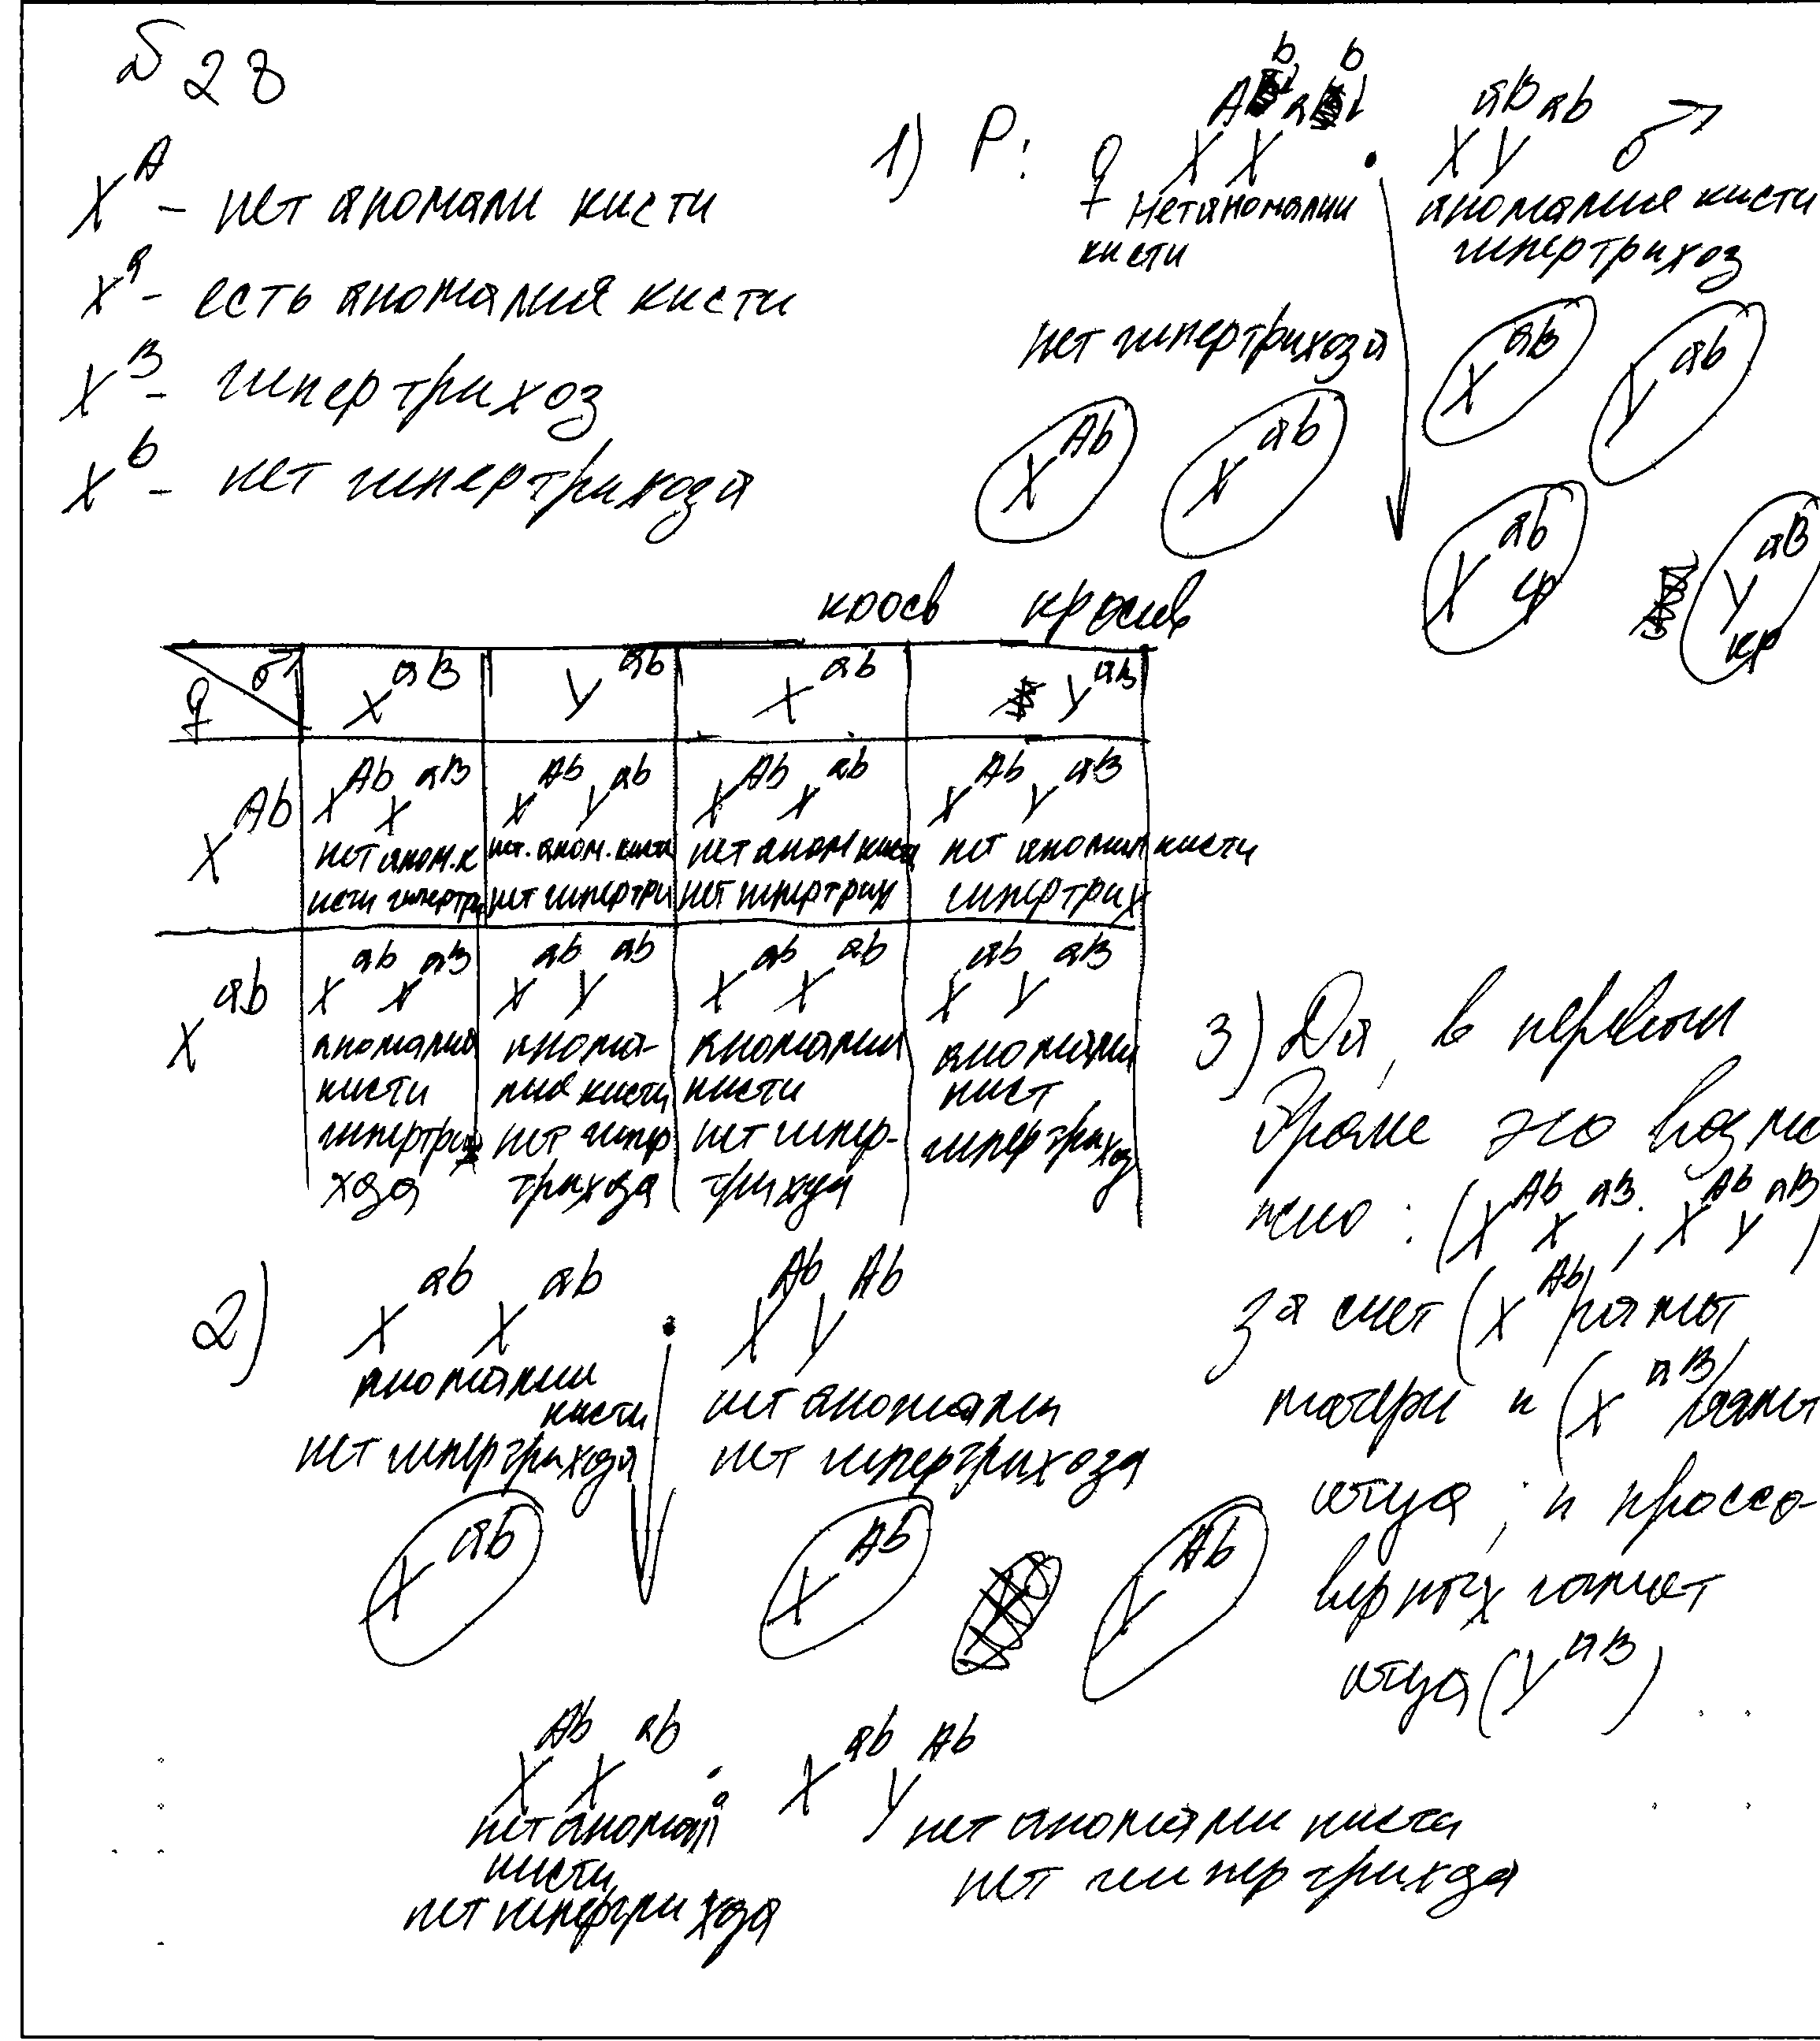 № 28
X^A - нет аномали кисти
X^a - есть аномалия кисти
X^B - гипертрихоз
X^b - нет гипертрихоза
1) P: ♀ X^Ab X^ab · X^aB Y^ab ♂
Нет аномалии
кисти
нет гипертрихоза
аномалия кисти
гипертрихоз
X^Ab X^ab
X^aB Y^ab
X^ab Y^aB
кр кр
♀ ♂ X^aB Y^ab X^ab Y^aB
X^Ab
X^Ab X^aB
нет аном. к
исти гипертри
X^Ab Y^ab
нет. аном. кисти
нет гипертри
X^Ab X^ab
нет аном кисти
нет гипертрих
X^Ab Y^aB
нет аномал кисти
гипертрих
X^ab
X^ab X^aB
аномалия
кисти
гипертри
хоза
X^ab Y^ab
анома-
лия кисти
нет гипер
трихоза
X^ab X^ab
аномалии
кисти
нет гипер-
трихоза
X^ab Y^aB
аномалии
кист
гипертрихоз
2) X^ab X^ab · X^Ab Y^Ab
аномалии
кисти
нет гипертрихоза
нет аномали
нет гипертрихоза
X^ab X^Ab Y^Ab
X^Ab X^ab ; X^ab Y^Ab
нет аномал
кисти,
нет гипертри хоза
нет аномали кисти
нет гипертрихоза
3) Да, в первом
браке это возмо
жно: (X^Ab X^aB; X^Ab Y^aB)
за счет (X^Ab) гамет
матери и (X^aB) гамет
отца; и кроссо-
верных гамет
отца (Y^aB)